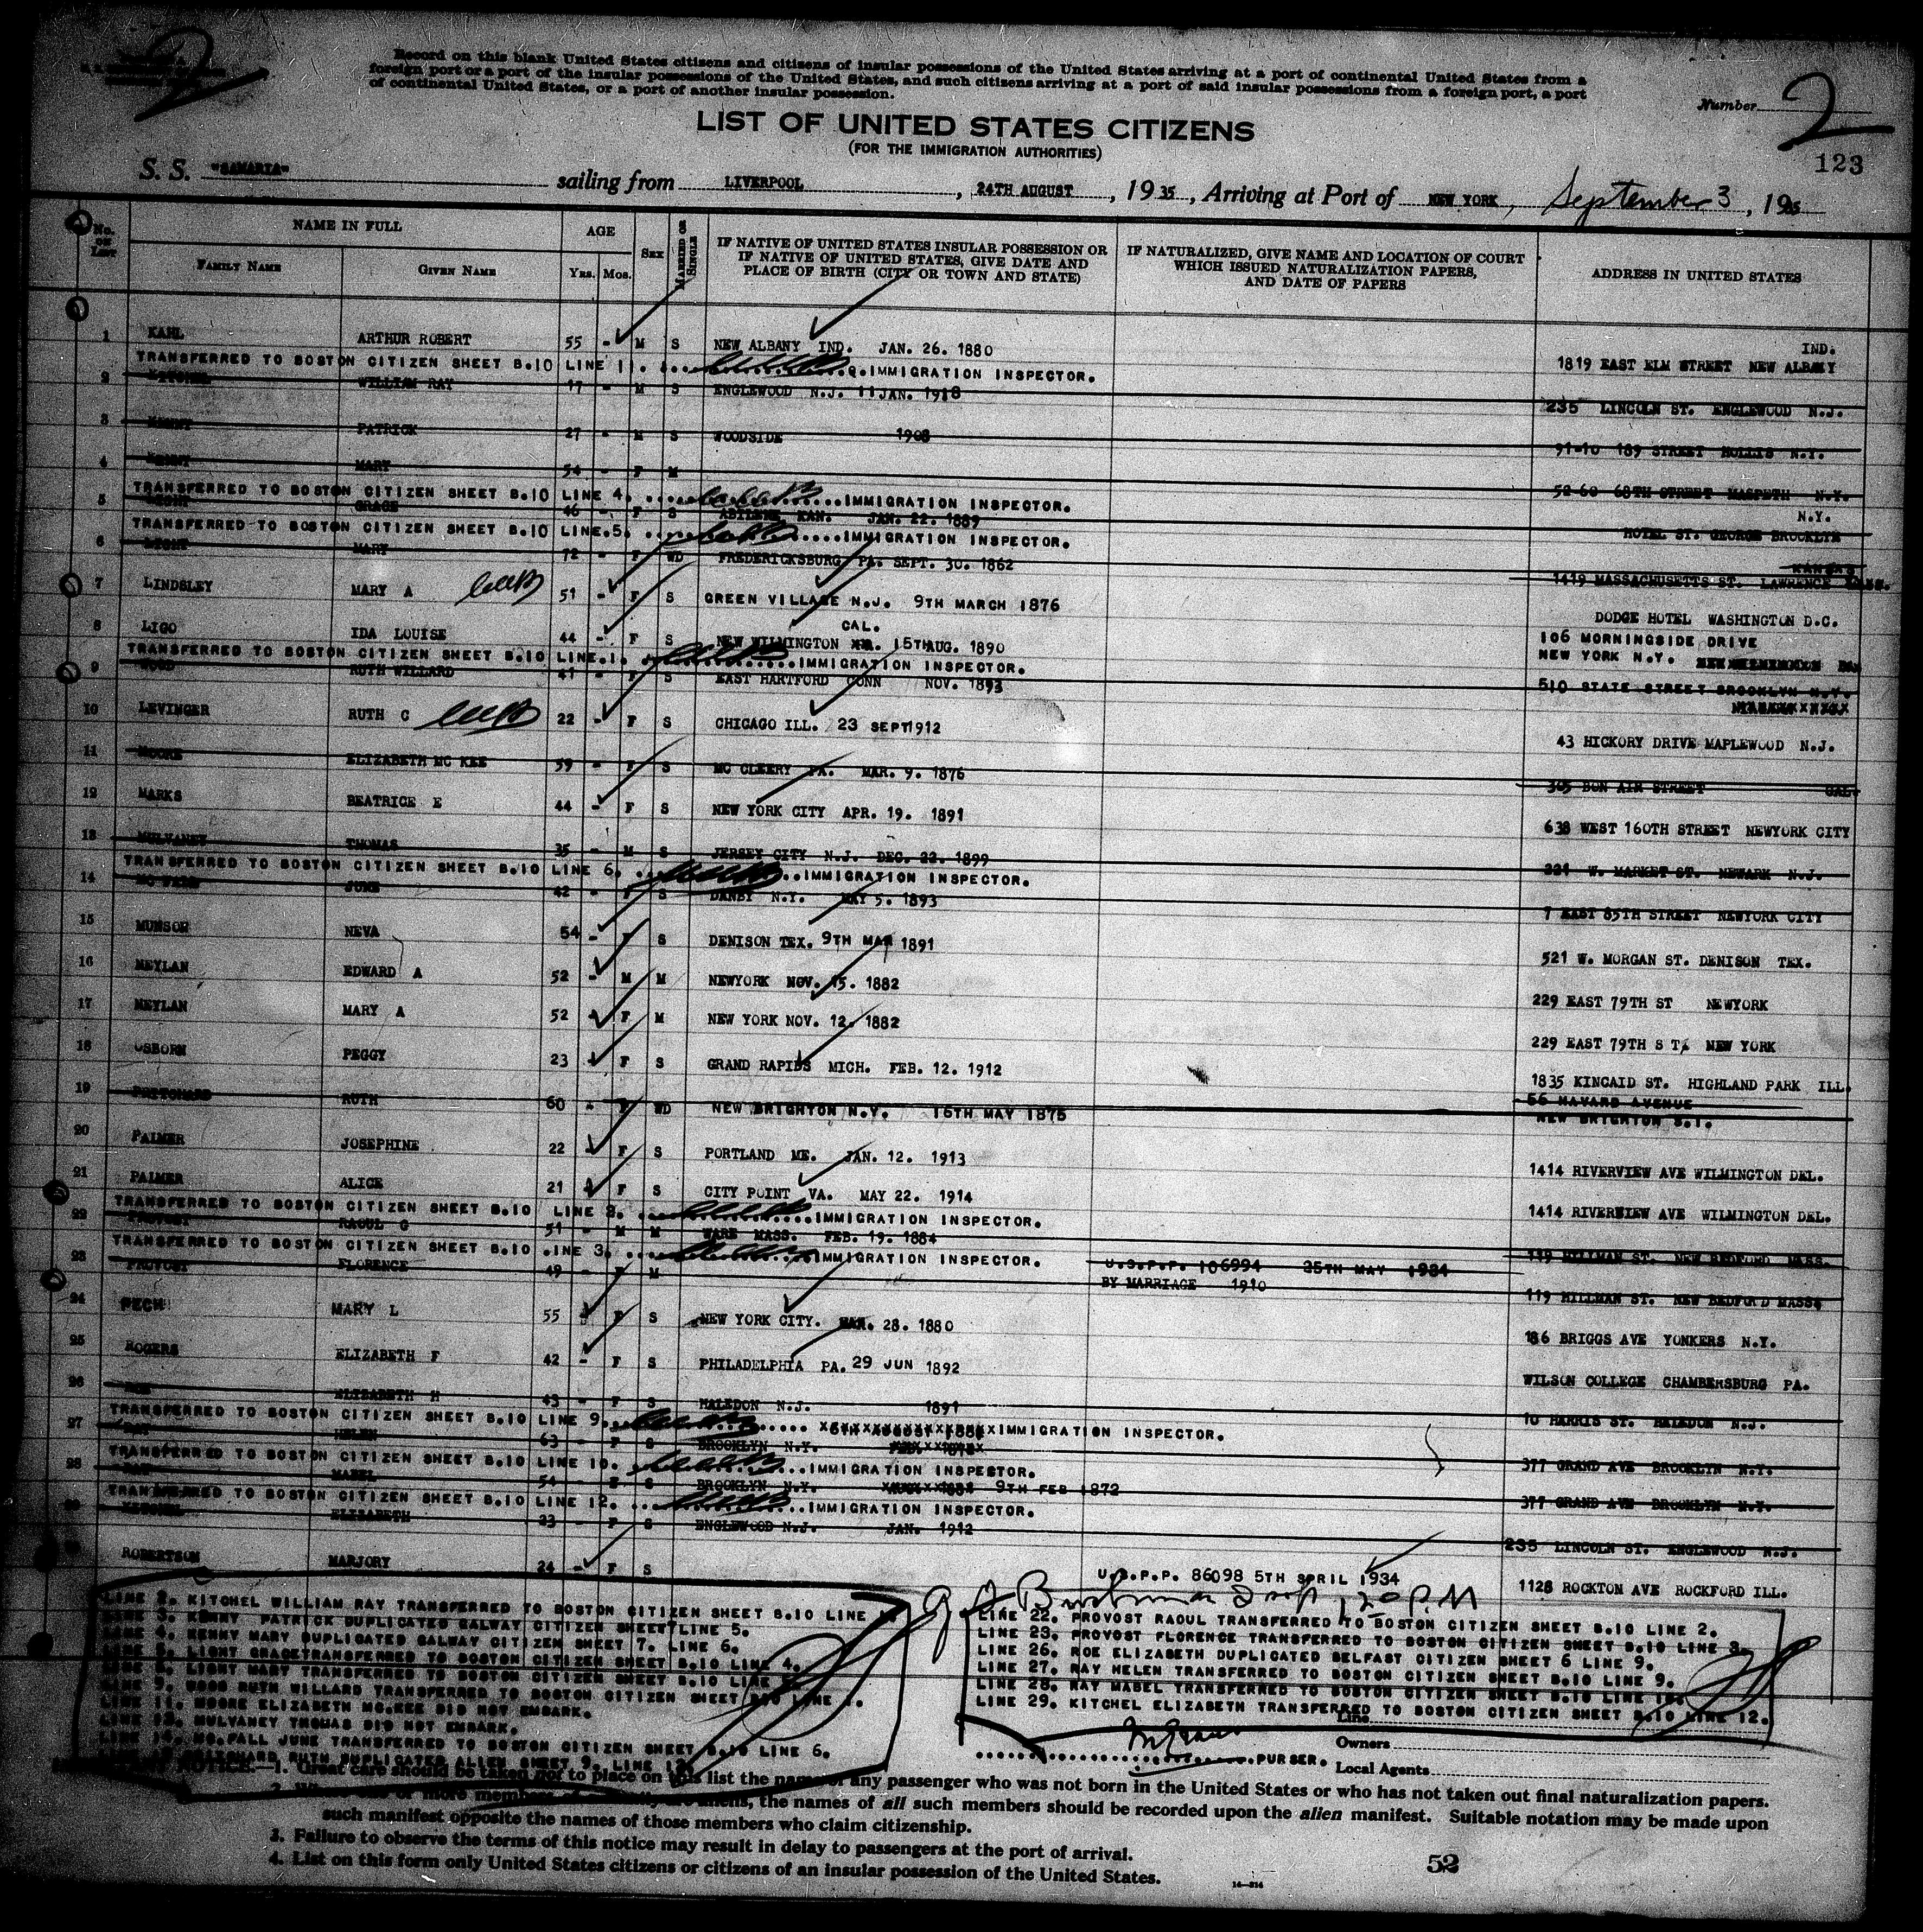 2
Record on this blank United States citizens and citizens of insular possessions of the United States arriving at a port of continental United States from a
foreign port or a port of the insular possessions of the United States, and such citizens arriving at a port of said insular possessions from a foreign port, a port
of continental United States, or a port of another insular possession.
Number 2
LIST OF UNITED STATES CITIZENS
(FOR THE IMMIGRATION AUTHORITIES)
123
S. S. "SAMARIA" sailing from LIVERPOOL, 24TH AUGUST, 1935, Arriving at Port of NEW YORK, September 3, 1935
No. on List NAME IN FULL AGE Sex Married or Single IF NATIVE OF UNITED STATES INSULAR POSSESSION OR IF NATIVE OF UNITED STATES, GIVE DATE AND PLACE OF BIRTH (CITY OR TOWN AND STATE) IF NATURALIZED, GIVE NAME AND LOCATION OF COURT WHICH ISSUED NATURALIZATION PAPERS, AND DATE OF PAPERS ADDRESS IN UNITED STATES
Family Name Given Name Yrs. Mos.
1 KAHL ARTHUR ROBERT 55 - M S NEW ALBANY IND. JAN. 26. 1880 1819 EAST ELM STREET NEW ALBANY IND.
TRANSFERRED TO BOSTON CITIZEN SHEET B.10 LINE 11. IMMIGRATION INSPECTOR.
2 KITCHEL WILLIAM RAY 17 - M S ENGLEWOOD N.J. 11 JAN. 1918 235 LINCOLN ST. ENGLEWOOD N.J.
3 KENNY PATRICK 27 - M S WOODSIDE 1908 91-10 189 STREET HOLLIS N.Y.
4 KENNY MARY 54 - F M 52-60 68TH STREET MASPETH N.Y.
TRANSFERRED TO BOSTON CITIZEN SHEET B.10 LINE 4. IMMIGRATION INSPECTOR.
5 LIGHT GRACE 46 - F S ABILENE KAN. JAN. 22. 1889 HOTEL ST. GEORGE BROOKLYN N.Y.
TRANSFERRED TO BOSTON CITIZEN SHEET B.10 LINE.5. IMMIGRATION INSPECTOR.
6 LIGHT MARY 72 - F WD FREDERICKSBURG PA. SEPT. 30. 1862 1419 MASSACHUSETTS ST. LAWRENCE KANSAS
7 LINDSLEY MARY A 51 - F S GREEN VILLAGE N.J. 9TH MARCH 1876 DODGE HOTEL WASHINGTON D.C.
8 LIGO IDA LOUISE 44 - F S NEW WILMINGTON CAL. 15TH AUG. 1890 106 MORNINGSIDE DRIVE NEW YORK N.Y.
TRANSFERRED TO BOSTON CITIZEN SHEET B.10 LINE.1. IMMIGRATION INSPECTOR.
9 WOOD RUTH WILLARD 41 - F S EAST HARTFORD CONN NOV. 1893 510 STATE STREET BROOKLYN N.Y.
10 LEVINGER RUTH C 22 - F S CHICAGO ILL. 23 SEPT 1912 43 HICKORY DRIVE MAPLEWOOD N.J.
11 MOORE ELIZABETH MC KEE 59 - F S MC CLEERY PA. MAR. 9. 1876 305 BON AIR STREET CAL.
12 MARKS BEATRICE E 44 - F S NEW YORK CITY APR. 19. 1891 638 WEST 160TH STREET NEWYORK CITY
13 MULVANEY THOMAS 35 - M S JERSEY CITY N.J. DEC. 22. 1899 221 W. MARKET ST. NEWARK N.J.
TRANSFERRED TO BOSTON CITIZEN SHEET B.10 LINE 6. IMMIGRATION INSPECTOR.
14 JUNE 42 - F S DANBY N.Y. MAY 5. 1893 7 EAST 85TH STREET NEWYORK CITY
15 MUNSOR NEVA 54 - F S DENISON TEX. 9TH MAR 1891 521 W. MORGAN ST. DENISON TEX.
16 MEYLAN EDWARD A 52 - M M NEWYORK NOV. 15. 1882 229 EAST 79TH ST NEWYORK
17 MEYLAN MARY A 52 - F M NEW YORK NOV. 12. 1882 229 EAST 79TH ST. NEW YORK
18 OSBORN PEGGY 23 - F S GRAND RAPIDS MICH. FEB. 12. 1912 1835 KINCAID ST. HIGHLAND PARK ILL.
19 PRITCHARD RUTH 60 - F WD NEW BRIGHTON N.Y. 15TH MAY 1875 56 HAVARD AVENUE NEW BRIGHTON S.I.
20 PALMER JOSEPHINE 22 - F S PORTLAND ME. JAN. 12. 1913 1414 RIVERVIEW AVE WILMINGTON DEL.
21 PALMER ALICE 21 - F S CITY POINT VA. MAY 22. 1914 1414 RIVERVIEW AVE WILMINGTON DEL.
TRANSFERRED TO BOSTON CITIZEN SHEET B.10 LINE 2. IMMIGRATION INSPECTOR.
22 PROVOST RAOUL G 51 - M M WARE MASS. FEB. 19. 1884 119 HILLMAN ST. NEW BEDFORD MASS.
TRANSFERRED TO BOSTON CITIZEN SHEET B.10 LINE 3. IMMIGRATION INSPECTOR.
23 PROVOST FLORENCE 49 - F M U.S.P.P. 106994 25TH MAY 1934 BY MARRIAGE 1910 119 HILLMAN ST. NEW BEDFORD MASS
24 PECH MARY L 55 - F S NEW YORK CITY. MAR. 28. 1880 186 BRIGGS AVE YONKERS N.Y.
25 ROGERS ELIZABETH F 42 - F S PHILADELPHIA PA. 29 JUN 1892 WILSON COLLEGE CHAMBERSBURG PA.
26 ROE ELIZABETH H 43 - F S HALEDON N.J. 1891 10 HARRIS ST. HALEDON N.J.
TRANSFERRED TO BOSTON CITIZEN SHEET B.10 LINE 9. IMMIGRATION INSPECTOR.
27 RAY HELEN 63 - F S BROOKLYN N.Y. 377 GRAND AVE BROOKLYN N.Y.
TRANSFERRED TO BOSTON CITIZEN SHEET B.10 LINE 10. IMMIGRATION INSPECTOR.
28 RAY MABEL 54 - F S BROOKLYN N.Y. 9TH FEB 1872 377 GRAND AVE BROOKLYN N.Y.
TRANSFERRED TO BOSTON CITIZEN SHEET B.10 LINE 12. IMMIGRATION INSPECTOR.
29 KITCHEL ELIZABETH 23 - F S ENGLEWOOD N.J. JAN. 1912 235 LINCOLN ST. ENGLEWOOD N.J.
ROBERTSON MARJORY 24 - F S U.S.P.P. 86098 5TH SPRIL 1934 1128 ROCKTON AVE ROCKFORD ILL.
LINE 2. KITCHEL WILLIAM RAY TRANSFERRED TO BOSTON CITIZEN SHEET B.10 LINE
LINE 3. KENNY PATRICK DUPLICATED GALWAY CITIZEN SHEET LINE 5.
LINE 4. KENNY MARY DUPLICATED GALWAY CITIZEN SHEET 7. LINE 6.
LINE 5. LIGHT GRACE TRANSFERRED TO BOSTON CITIZEN SHEET B.10 LINE 4.
LINE 6. LIGHT MARY TRANSFERRED TO BOSTON CITIZEN SHEET B.10 LINE
LINE 9. WOOD RUTH WILLARD TRANSFERRED TO BOSTON CITIZEN SHEET B.10 LINE 1.
LINE 11. MOORE ELIZABETH MC.KEE DID NOT EMBARK.
LINE 13. MULVANEY THOMAS DID NOT EMBARK.
LINE 14. MC.FALL JUNE TRANSFERRED TO BOSTON CITIZEN SHEET B.10 LINE 6.
LINE 19. PRITCHARD RUTH DUPLICATED ALIEN SHEET 9. LINE
LINE 22. PROVOST RAOUL TRANSFERRED TO BOSTON CITIZEN SHEET B.10 LINE 2.
LINE 23. PROVOST FLORENCE TRANSFERRED TO BOSTON CITIZEN SHEET B.10 LINE 3.
LINE 26. ROE ELIZABETH DUPLICATED BELFAST CITIZEN SHEET 6 LINE 9.
LINE 27. RAY HELEN TRANSFERRED TO BOSTON CITIZEN SHEET B.10 LINE 9.
LINE 28. RAY MABEL TRANSFERRED TO BOSTON CITIZEN SHEET B.10 LINE 10.
LINE 29. KITCHEL ELIZABETH TRANSFERRED TO BOSTON CITIZEN SHEET B.10 LINE 12.
Line
Owners
PURSER.
Local Agents
NOTICE.—1. Great care should be taken not to place on this list the name of any passenger who was not born in the United States or who has not taken out final naturalization papers.
2. or more members aliens, the names of all such members should be recorded upon the alien manifest. Suitable notation may be made upon
such manifest opposite the names of those members who claim citizenship.
3. Failure to observe the terms of this notice may result in delay to passengers at the port of arrival.
4. List on this form only United States citizens or citizens of an insular possession of the United States.
52
14—214